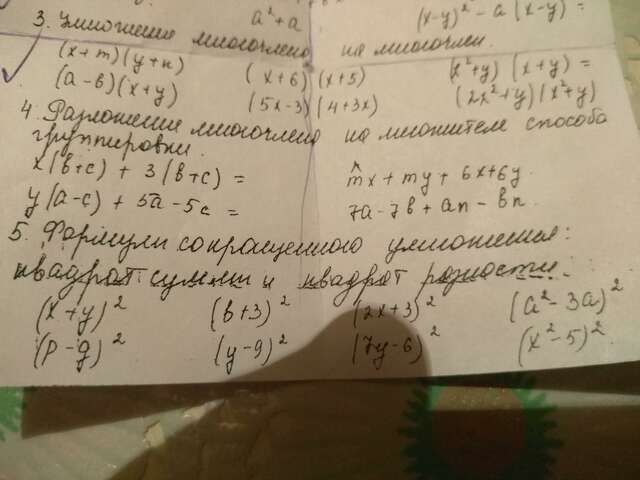 a²+a (x-y)² - a(x-y) =
3. Умножение многочлена на многочлен.
(x+m)(y+n) (x+6)(x+5) (x²+y)(x+y) =
(a-b)(x+y) (5x-3)(4+3x) (2x²+y)(x²+y)
4. Разложение многочлена на множители способа
группировки.
x(b+c) + 3(b+c) = mx + my + 6x+6y
y(a-c) + 5a-5c = 7a-7b + an - bn.
5. Формулы сокращенного умножения:
квадрат суммы и квадрат разности.
(x+y)² (b+3)² (2x+3)² (a²-3a)²
(p-g)² (y-9)² (7y-6)² (x²-5)²